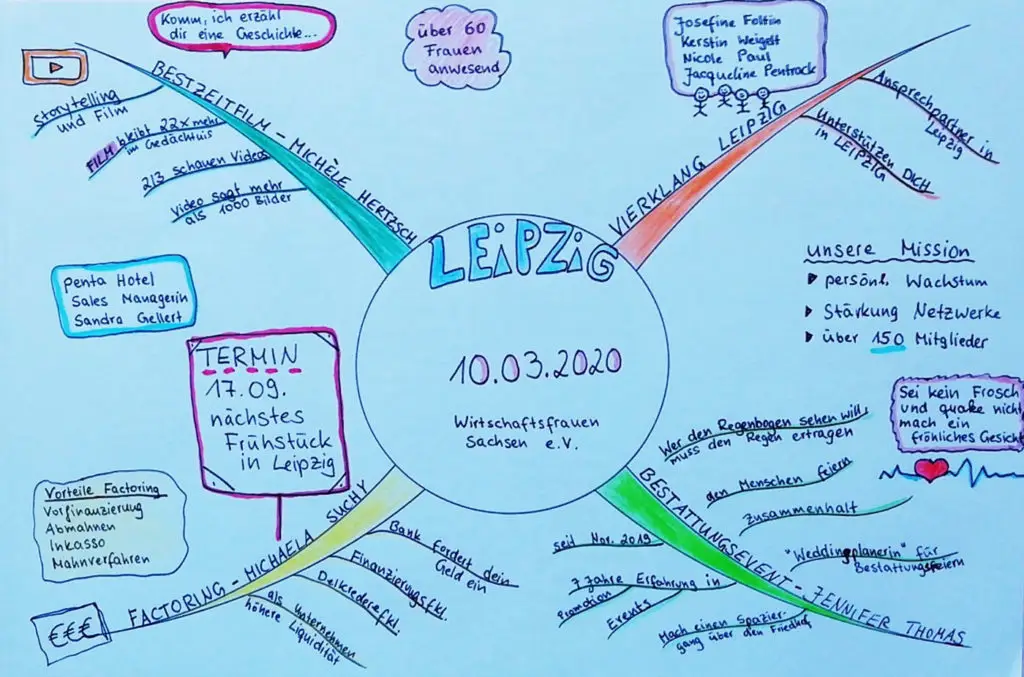 Komm, ich erzähl
dir eine Geschichte...
über 60
Frauen
anwesend
Josefine Foltin
Kerstin Weigelt
Nicole Paul
Jacqueline Pentrack
BESTZEITFILM – MICHÈLE HERTZSCH
Storytelling
und Film
FILM bleibt 22x mehr
im Gedächtnis
2/3 schauen Videos
Video sagt mehr
als 1000 Bilder
VIERKLANG LEIPZIG
Ansprechpartner in
Leipzig
Unterstützen DICH
in LEIPZIG
LEIPZIG
10.03.2020
Wirtschaftsfrauen
Sachsen e.V.
unsere Mission
persönl. Wachstum
Stärkung Netzwerke
über 150 Mitglieder
penta Hotel
Sales Managerin
Sandra Gellert
TERMIN
17.09.
nächstes
Frühstück
in Leipzig
Sei kein Frosch
und quake nicht
mach ein
fröhliches Gesicht
Vorteile Factoring
Vorfinanzierung
Abmahnen
Inkasso
Mahnverfahren
€€€
FACTORING – MICHAELA SUCHY
Bank fordert dein
Geld ein
Finanzierungsfkt.
Delkrederefkt.
als Unternehmen
höhere Liquidität
BESTATTUNGSEVENT – JENNIFER THOMAS
Wer den Regenbogen sehen will,
muss den Regen ertragen
den Menschen feiern
Zusammenhalt
"Weddingplanerin" für
Bestattungsfeiern
seit Nov. 2019
7 Jahre Erfahrung in
Promotion
Events
Mach einen Spazier-
gang über den Friedhof